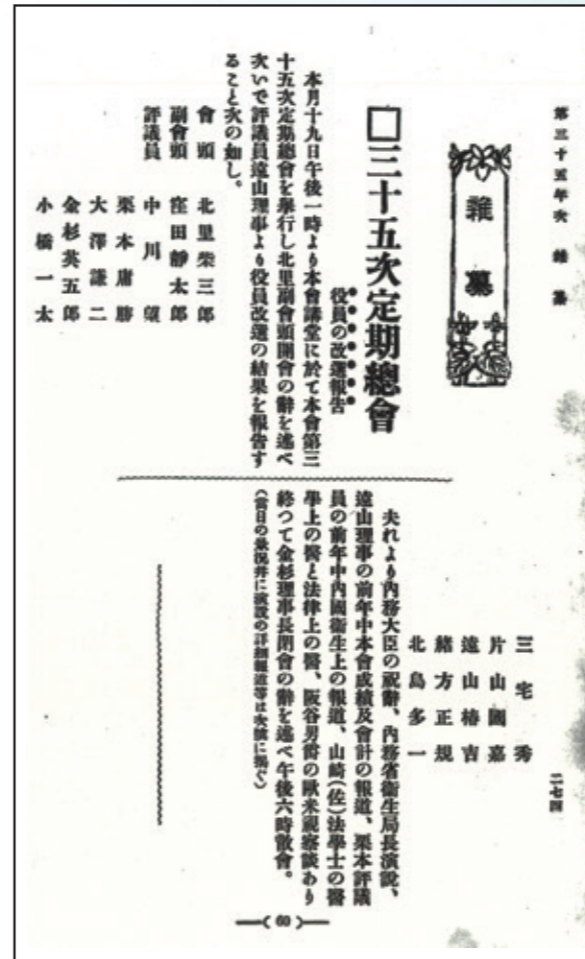 第三十五年次 雑纂
雑纂
□三十五次定期總會
役員の改選報告
本月十九日午後一時より本會講堂に於て本會第三
十五次定期總會を擧行し北里副會頭開會の辭を述べ
次いで評議員遠山理事より役員改選の結果を報告す
ること次の如し。
會頭 北里柴三郎
副會頭 窪田靜太郎
評議員 中川望
栗本庸勝
大澤謙二
金杉英五郎
小橋一太
三宅秀
片山國嘉
遠山椿吉
緒方正規
北島多一
夫れより內務大臣の祝辭、內務省衞生局長演說、
遠山理事の前年中本會成績及會計の報道、栗本評議
員の前年中內國衞生上の報道、山崎(佐)法學士の醫
學上の醫と法律上の醫、阪谷男爵の歐米視察談あり
終つて金杉理事長閉會の辭を述べ午後六時散會。
(當日の景況并に演說の詳細報道等は次號に揭ぐ)
二七四
( 60 )